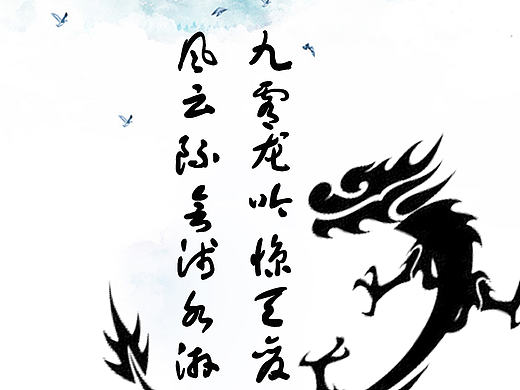 九霄龙吟惊天变
风云际会浅水游